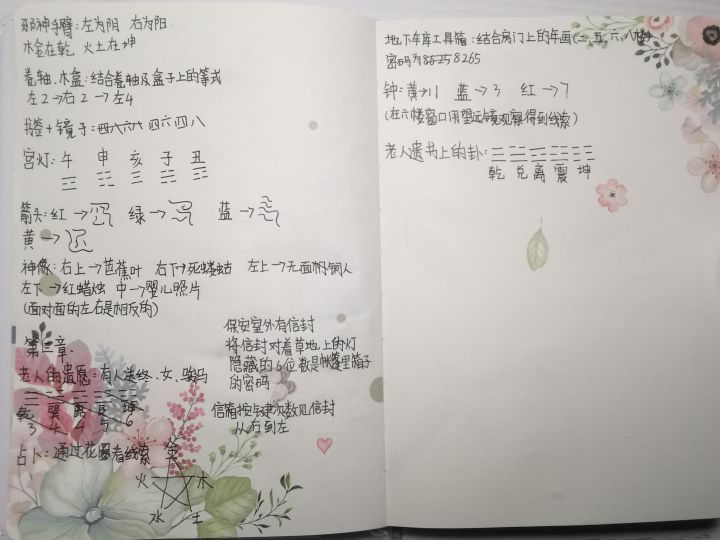 邪神手臂:左为阴 右为阳
木金在乾 火土在坤
卷轴、木盒:结合卷轴及盒子上的等式
左2→右2→左4
镜子:四八六六 四六四八
宫灯:午 申 亥 子 丑
箭头:红→ 绿→ 蓝→
黄→
神像:右上→芭蕉叶 右下→死蝼蛄 左上→无面铜人
左下→红蜡烛 中→婴儿照片
(面对面的左右是相反的)
第三章
老人的遗愿:有人送终、女、骏马
乾 巽 震 艮 坤
3 4 4 5 6
占卜:通过花圈看线索 金
火 木
水 土
保安室外有信封
将信封对着草地上的灯
隐藏的6位数是帐篷里箱子
的密码
信箱按次数见信封
从右到左
地下车库工具箱:结合房门上的年画(二、五、六、八楼)
密码为8625 8265
钟:黄→11 蓝→3 红→7
(在六楼窗口用望远镜观察得到线索)
老人遗书上的卦:
乾 兑 离 震 坤